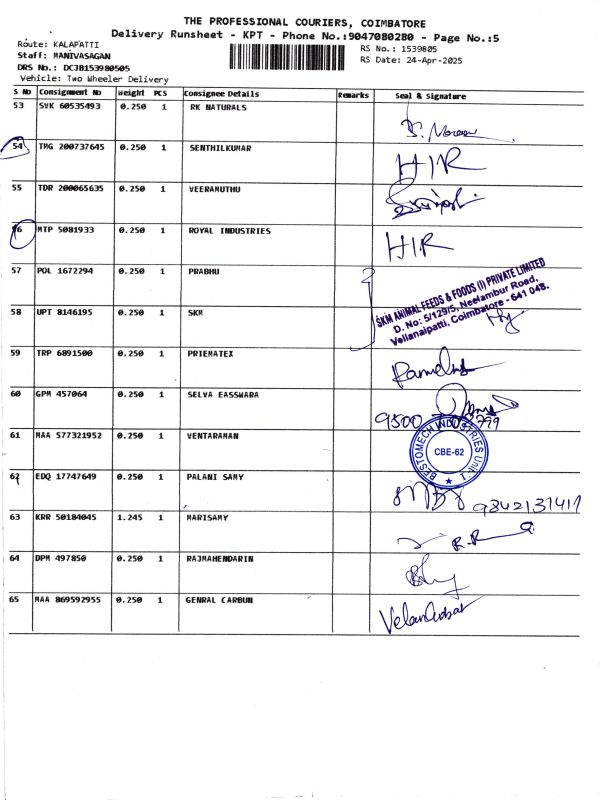 THE PROFESSIONAL COURIERS, COIMBATORE
Delivery Runsheet - KPT - Phone No.:9047080280 - Page No.:5
Route: KALAPATTI
Staff: MANIVASAGAN
DRS No.: DCJB153980505
Vehicle: Two Wheeler Delivery
RS No.: 1539805
RS Date: 24-Apr-2025
S No Consignment No Weight PCS Consignee Details Remarks Seal & Signature
53 SVK 60535493 0.250 1 RK NATURALS
54 TMG 200737645 0.250 1 SENTHILKUMAR H/R
55 TDR 200065635 0.250 1 VEERAMUTHU
56 MTP 5081933 0.250 1 ROYAL INDUSTRIES H/R
57 POL 1672294 0.250 1 PRABHU
SKM ANIMAL FEEDS & FOODS (I) PRIVATE LIMITED
D. No: 5/129/5, Neelambur Road,
Vellanaipatti, Coimbatore - 641 048.
58 UPT 8146195 0.250 1 SKM
59 TRP 6891500 0.250 1 PRIEMATEX
60 GPM 457064 0.250 1 SELVA EASSWARA
9500
61 MAA 577321952 0.250 1 VENTARAMAN
BESTOMECH INDUSTRIES Unit. 1
CBE-62
62 EDQ 17747649 0.250 1 PALANI SAMY
63 KRR 50184045 1.245 1 MARISAMY
64 DPM 497850 0.250 1 RAJMAHENDARIN
65 MAA 869592955 0.250 1 GENRAL CARBUN